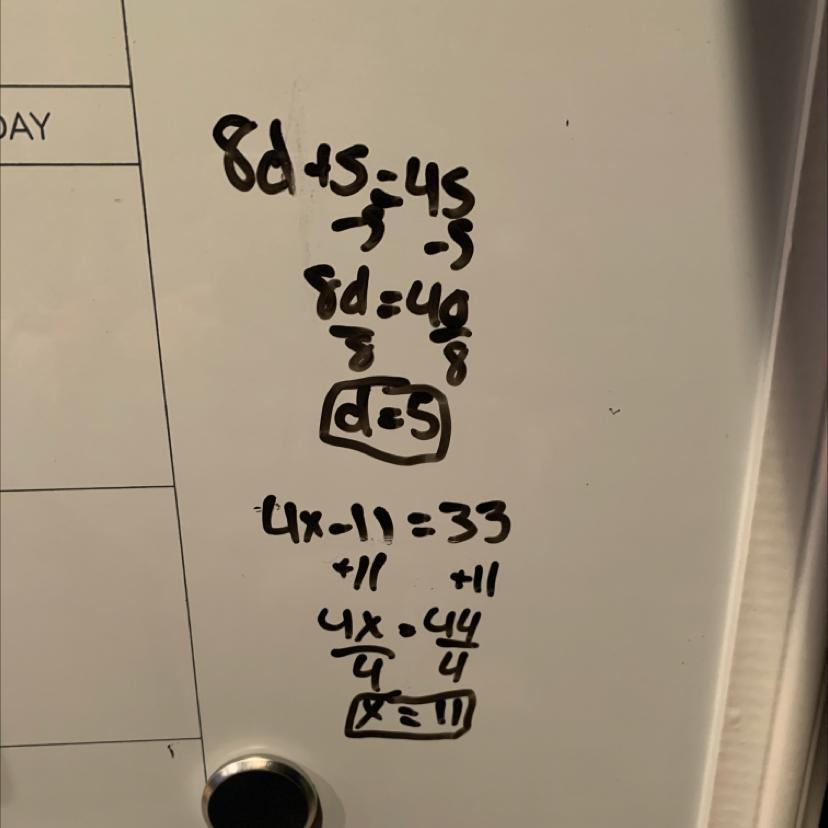 DAY
8d+5=45
-5 -5
8d=40
8 8
d=5
4x-11=33
+11 +11
4x=44
4 4
x=11